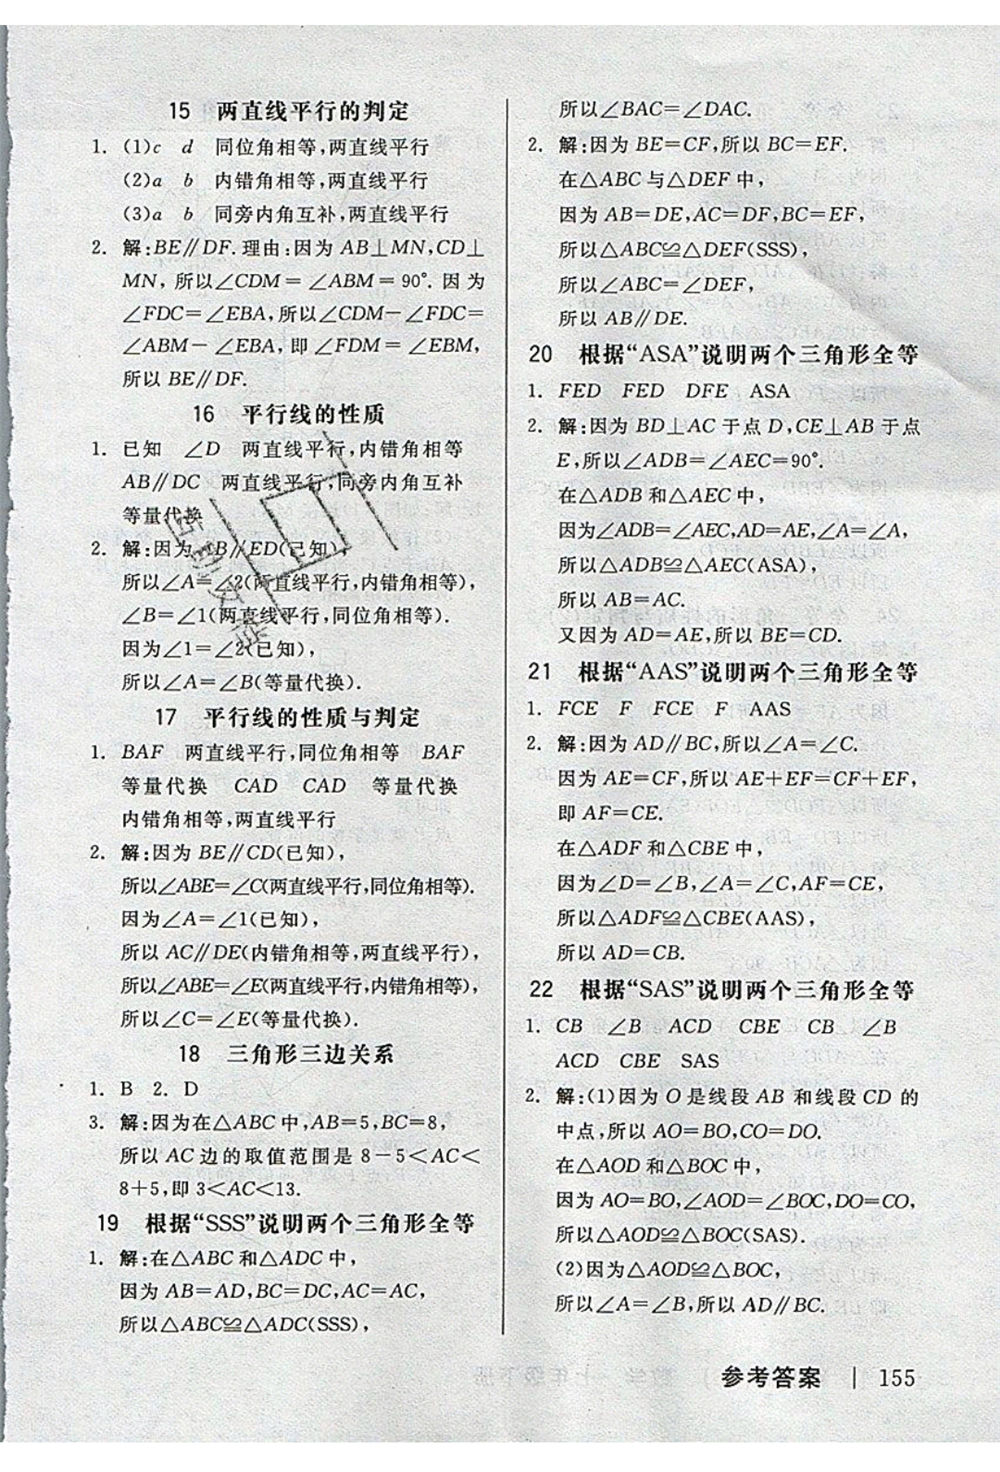 15 两直线平行的判定
1. (1)c d 同位角相等,两直线平行
(2)a b 内错角相等,两直线平行
(3)a b 同旁内角互补,两直线平行
2. 解:BE∥DF.理由:因为 AB⊥MN,CD⊥
MN,所以∠CDM=∠ABM=90°.因为
∠FDC=∠EBA,所以∠CDM-∠FDC=
∠ABM-∠EBA,即∠FDM=∠EBM,
所以 BE∥DF.
16 平行线的性质
1. 已知 ∠D 两直线平行,内错角相等
AB∥DC 两直线平行,同旁内角互补
等量代换
2. 解:因为AB∥ED(已知),
所以∠A=∠2(两直线平行,内错角相等).
∠B=∠1(两直线平行,同位角相等).
因为∠1=∠2(已知),
所以∠A=∠B(等量代换).
17 平行线的性质与判定
1. BAF 两直线平行,同位角相等 BAF
等量代换 CAD CAD 等量代换
内错角相等,两直线平行
2. 解:因为 BE∥CD(已知),
所以∠ABE=∠C(两直线平行,同位角相等).
因为∠A=∠1(已知),
所以 AC∥DE(内错角相等,两直线平行),
所以∠ABE=∠E(两直线平行,内错角相等),
所以∠C=∠E(等量代换).
18 三角形三边关系
1. B 2. D
3. 解:因为在△ABC 中,AB=5,BC=8,
所以 AC 边的取值范围是 8-5<AC<
8+5,即 3<AC<13.
19 根据“SSS”说明两个三角形全等
1. 解:在△ABC 和△ADC 中,
因为 AB=AD,BC=DC,AC=AC,
所以△ABC≌△ADC(SSS),
所以∠BAC=∠DAC.
2. 解:因为 BE=CF,所以 BC=EF.
在△ABC 与△DEF 中,
因为 AB=DE,AC=DF,BC=EF,
所以△ABC≌△DEF(SSS),
所以∠ABC=∠DEF,
所以 AB∥DE.
20 根据“ASA”说明两个三角形全等
1. FED FED DFE ASA
2. 解:因为 BD⊥AC 于点 D,CE⊥AB 于点
E,所以∠ADB=∠AEC=90°.
在△ADB 和△AEC 中,
因为∠ADB=∠AEC,AD=AE,∠A=∠A,
所以△ADB≌△AEC(ASA),
所以 AB=AC.
又因为 AD=AE,所以 BE=CD.
21 根据“AAS”说明两个三角形全等
1. FCE F FCE F AAS
2. 解:因为 AD∥BC,所以∠A=∠C.
因为 AE=CF,所以 AE+EF=CF+EF,
即 AF=CE.
在△ADF 和△CBE 中,
因为∠D=∠B,∠A=∠C,AF=CE,
所以△ADF≌△CBE(AAS),
所以 AD=CB.
22 根据“SAS”说明两个三角形全等
1. CB ∠B ACD CBE CB ∠B
ACD CBE SAS
2. 解:(1)因为 O 是线段 AB 和线段 CD 的
中点,所以 AO=BO,CO=DO.
在△AOD 和△BOC 中,
因为 AO=BO,∠AOD=∠BOC,DO=CO,
所以△AOD≌△BOC(SAS).
(2)因为△AOD≌△BOC,
所以∠A=∠B,所以 AD∥BC.
参考答案 | 155